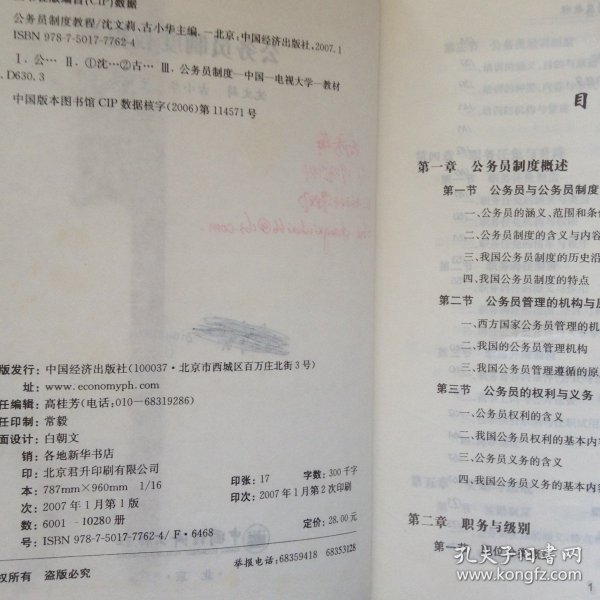 (CIP)数据
公务员制度教程/沈文莉、古小华主编.－北京:中国经济出版社,2007.1
ISBN 978-7-5017-7762-4
Ⅰ.公… Ⅱ.①沈…②古… Ⅲ.公务员制度—中国—电视大学—教材
. D630.3
中国版本图书馆 CIP 数据核字(2006)第 114571 号
版发行: 中国经济出版社(100037·北京市西城区百万庄北街 3 号)
址: www.economyph.com
任编辑: 高桂芳(电话:010—68319286)
任印制: 常毅
面设计: 白朝文
销: 各地新华书店
印: 北京君升印刷有限公司
本: 787mm×960mm 1/16 印张: 17 字数: 300 千字
次: 2007 年 1 月第 1 版 印次: 2007 年 1 月第 2 次印刷
数: 6001-10280 册
号: ISBN 978-7-5017-7762-4/F·6468 定价: 28.00 元
权所有 盗版必究 举报电话: 68359418 68353128
目
第一章 公务员制度概述
第一节 公务员与公务员制度
一、公务员的涵义、范围和条件
二、公务员制度的含义与内容
三、我国公务员制度的历史沿
四、我国公务员制度的特点
第二节 公务员管理的机构与原
一、西方国家公务员管理的机
二、我国的公务员管理机构
三、我国公务员管理遵循的原
第三节 公务员的权利与义务
一、公务员权利的含义
二、我国公务员权利的基本内容
三、公务员义务的含义
四、我国公务员义务的基本内容
第二章 职务与级别
第一节 职位分类概述
1
孔夫子旧书网
www.kongfz.com